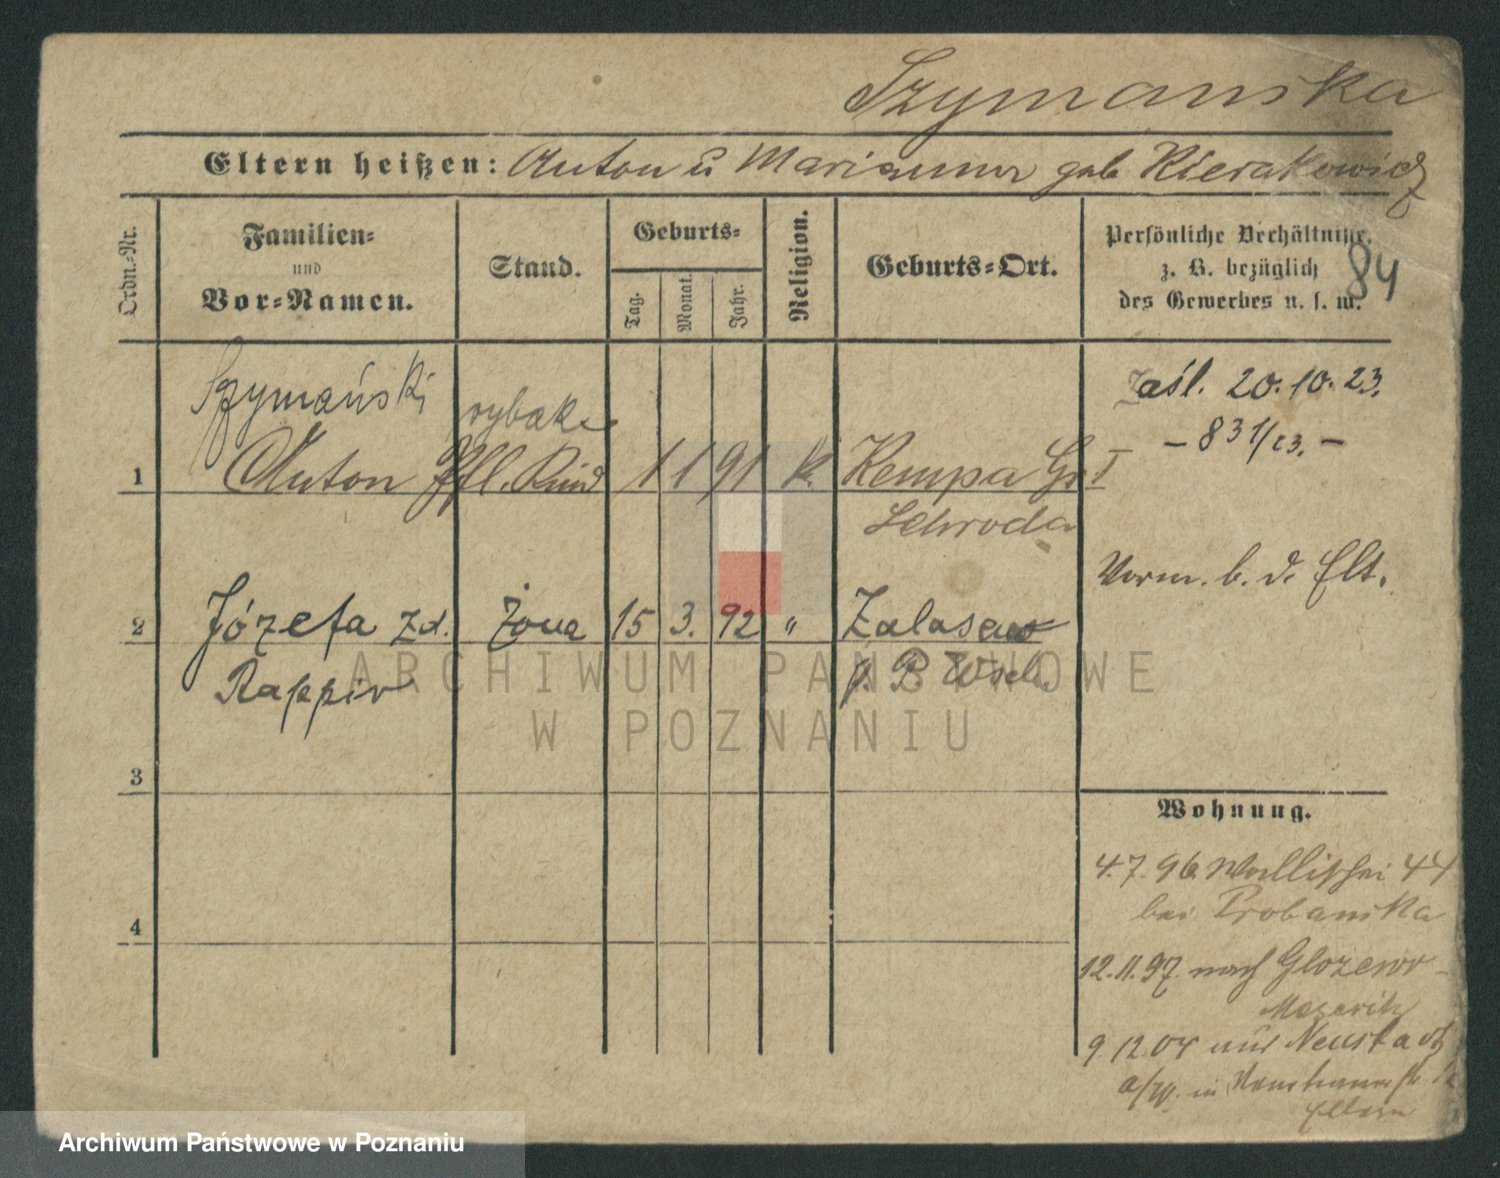 Szymanska
Eltern heißen: Anton u Marianna geb Kierakowicz
Ordn.-Nr.
Familien-
und
Vor-Namen.
Stand.
Geburts-
Tag.
Monat.
Jahr.
Religion.
Geburts-Ort.
Persönliche Verhältnisse,
z. B. bezüglich
des Gewerbes u. s. w.
84
Szymański
rybak
1 Anton Pfl. Kind 1 1 91 k. Kempa Gr I
Schroda
Zaśl. 20.10.23.
- 831/23. -
Vorm. b. d. Elt.
2 Józefa zd. żona 15 3. 92 " Zalasewo
Rappir
p. P. Wsch.
3
4
Wohnung.
4.7.96 Wallischei 44
bei Probanska
12.11.97. nach Glozewo
Meseritz
9.12.04 aus Neustadt
a/W. in
Eltern
ARCHIWUM PAŃSTWOWE
W POZNANIU
Archiwum Państwowe w Poznaniu